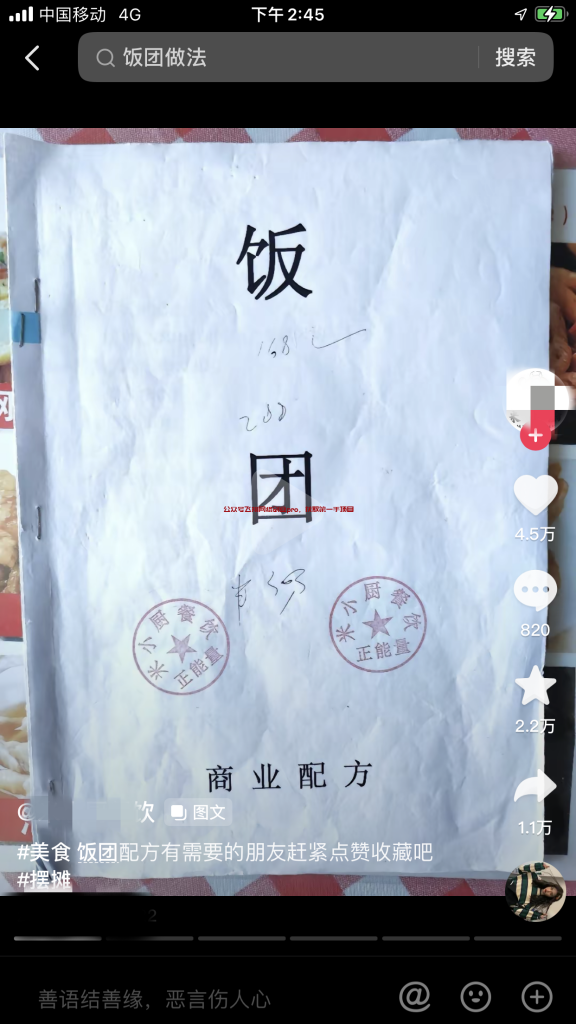 中国移动 4G 下午2:45
饭团做法 搜索
饭
168
200
团
4.5万
820
米小厨餐饮
正能量
米小厨餐饮
正能量
2.2万
商业配方
1.1万
图文
#美食 饭团配方有需要的朋友赶紧点赞收藏吧
#摆摊
2
善语结善缘，恶言伤人心